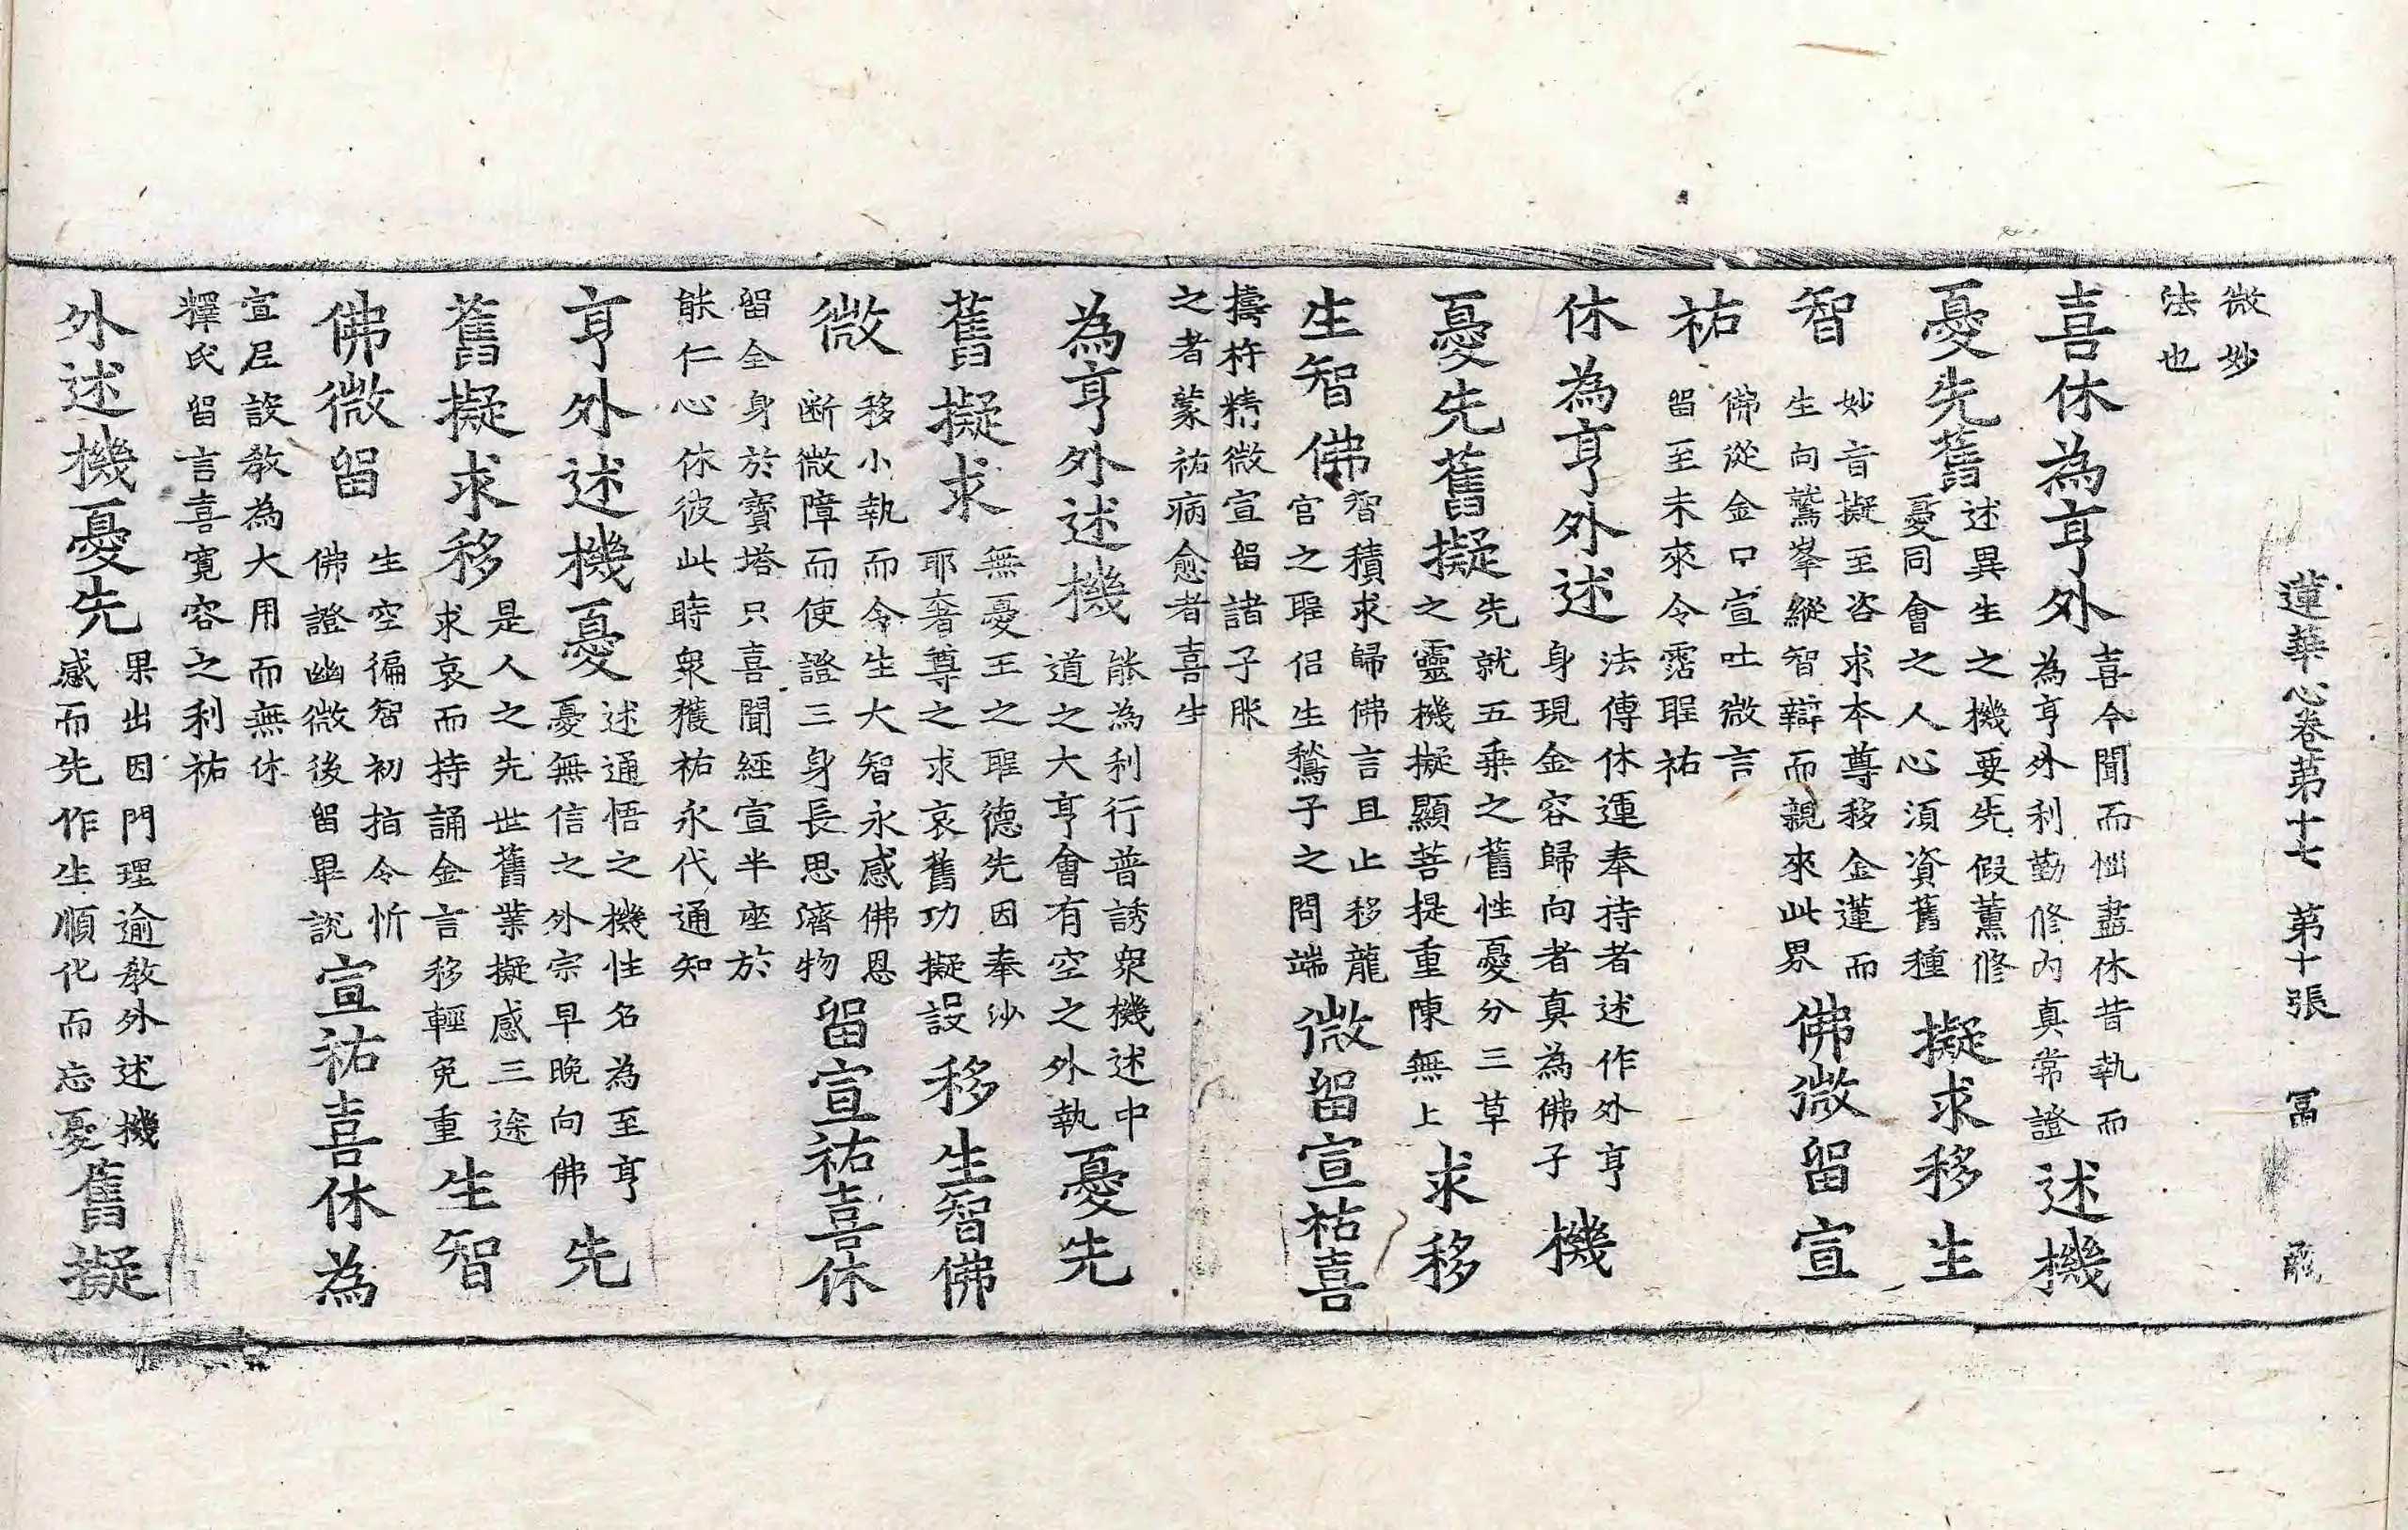 蓮華心卷第十七 第十張 冨
微妙
法也
喜休為亨外
喜今聞而惱盡休昔執而
為亨外利勤修內真常證
述機
憂先舊
述異生之機要先假薰修
憂同會之人心須資舊種
擬求移生
智
妙音擬至咨求本尊移金蓮而
生向鷲峯縱智辯而親來此界
佛微留宣
祐
佛從金口宣吐微言
留至未來令霑聖祐
休為亨外述
法傳休運奉持者述作外亨
身現金容歸向者真為佛子
機
憂先舊擬
先就五乘之舊性憂分三草
之靈機擬顯菩提重陳無上
求移
生智佛
智積求歸佛言且止移龍
官之聖侶生鶖子之問端
微留宣祐喜
擣杵精微宣留諸子服
之者蒙祐病愈者喜生
為亨外述機
能為利行普誘衆機述中
道之大亨會有空之外執
憂先
舊擬求
無憂王之聖德先因奉沙
耶奢尊之求哀舊功擬設
移生智佛
微
移小執而令生大智永感佛恩
断微障而使證三身長思濟物
留宣祐喜休
留全身於寶塔只喜聞經宣半座於
能仁心休彼此時衆獲祐永代通知
亨外述機憂
述通悟之機性名為至亨
憂無信之外宗早晚向佛
先
舊擬求移
是人之先世舊業擬感三途
求哀而持誦金言移輕免重
生智
佛微留
生空徧智初指令忻
佛證幽微後留畢說
宣祐喜休為
宣尼設教為大用而無休
釋氏留言喜寬容之利祐
外述機憂先
果出因門理逾教外述機
感而先作生順化而忘憂
舊擬